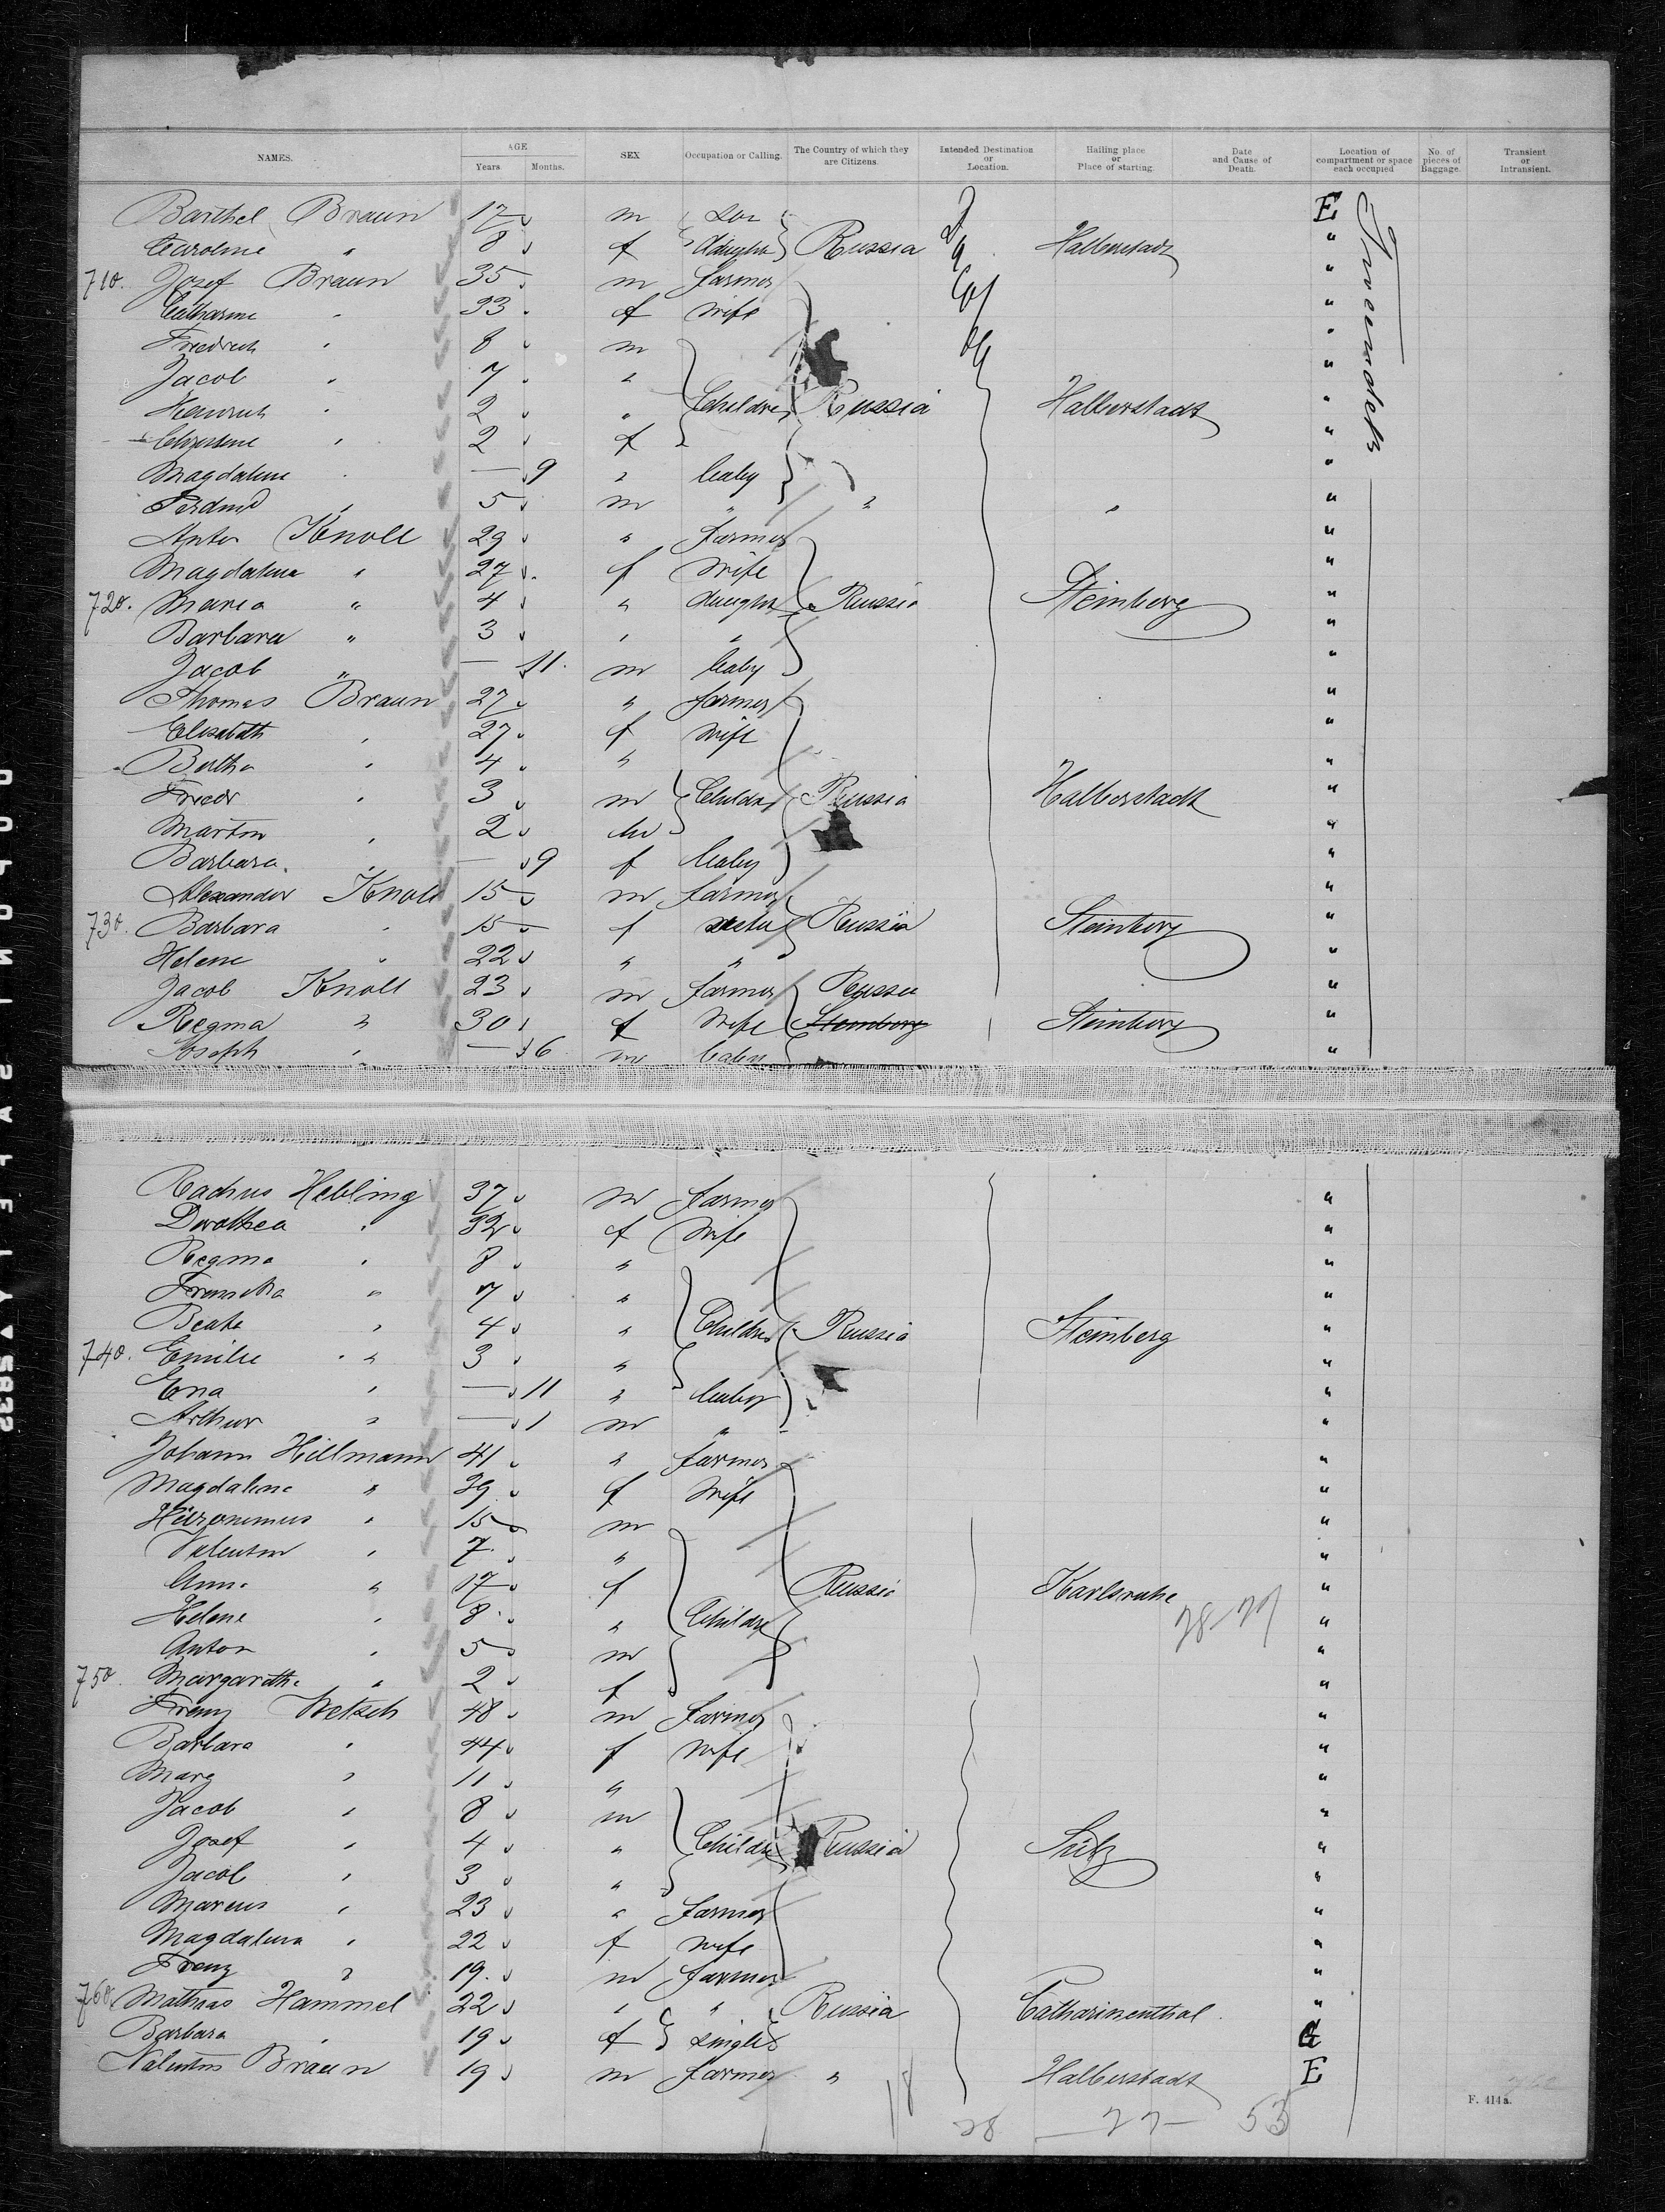 NAMES. AGE Years Months. SEX Occupation or Calling. The Country of which they are Citizens. Intended Destination or Location. Hailing place or Place of starting. Date and Cause of Death. Location of compartment or space each occupied No. of pieces of Baggage. Transient or Intransient.
Barthel Braun 17 m Son E
Caroline " 8 f daughter Russia Halberstadt "
710. Josef Braun 35 m farmer "
Catharine " 33 f wife "
Friedrich " 8 m "
Jacob " 7 " "
Heinrich " 2 " Children Russia Halberstadt "
Christine " 2 f "
Magdalene — 9 " baby "
Ferdind " 5 m " " " "
Anton Knoll 29 " farmer "
Magdalena " 27 f wife "
720. Maria " 4 " daughter Russia Steinberg "
Barbara " 3 " " "
Jacob " — 11 m baby "
Thomas Braun 27 " farmer "
Elisabeth " 27 f wife "
Bertha " 4 " "
Friedr " 3 m Childr Russia Halberstadt "
Martin " 2 "
Barbara " — 9 f baby "
Alexander Knoll 15 m farmer "
730. Barbara " 15 f Russia Steinberg "
Helene " 22 " " "
Jacob Knoll 23 m farmer Russia "
Regina " 30 f wife Steinberg Steinberg "
Joseph " — 6 m baby "
Hebling 37 m farmer "
Dorothea " 32 f wife "
Regina " 8 " "
Franziska " 7 " "
Beata " 4 " Children Russia Steinberg "
740. Emilie " 3 " "
Ena " — 11 " baby "
Arthur " — 1 m " "
Johann Hillmann 41 " farmer "
Magdalene " 39 f wife "
Hieronimus " 15 m "
Valentin " 7 " "
Anna " 17 f Russia Karlsruhe "
Helene " 8 " Childr "
Anton " 5 m "
750 Margareth " 2 f "
Franz Wetsch 48 m farmer "
Barbara " 44 f wife "
Marg " 11 " "
Jacob " 8 m "
Josef " 4 " Childr Russia Sulz "
Jacob " 3 " "
Marcus " 23 " farmer "
Magdalena " 22 f wife "
Franz " 19 m farmer "
760. Mathias Hammel 22 " " Russia Catharinenthal "
Barbara " 19 f single
Valentin Braun 19 m farmer " Halberstadt E
18 28 — 27 — 53
F. 414a.